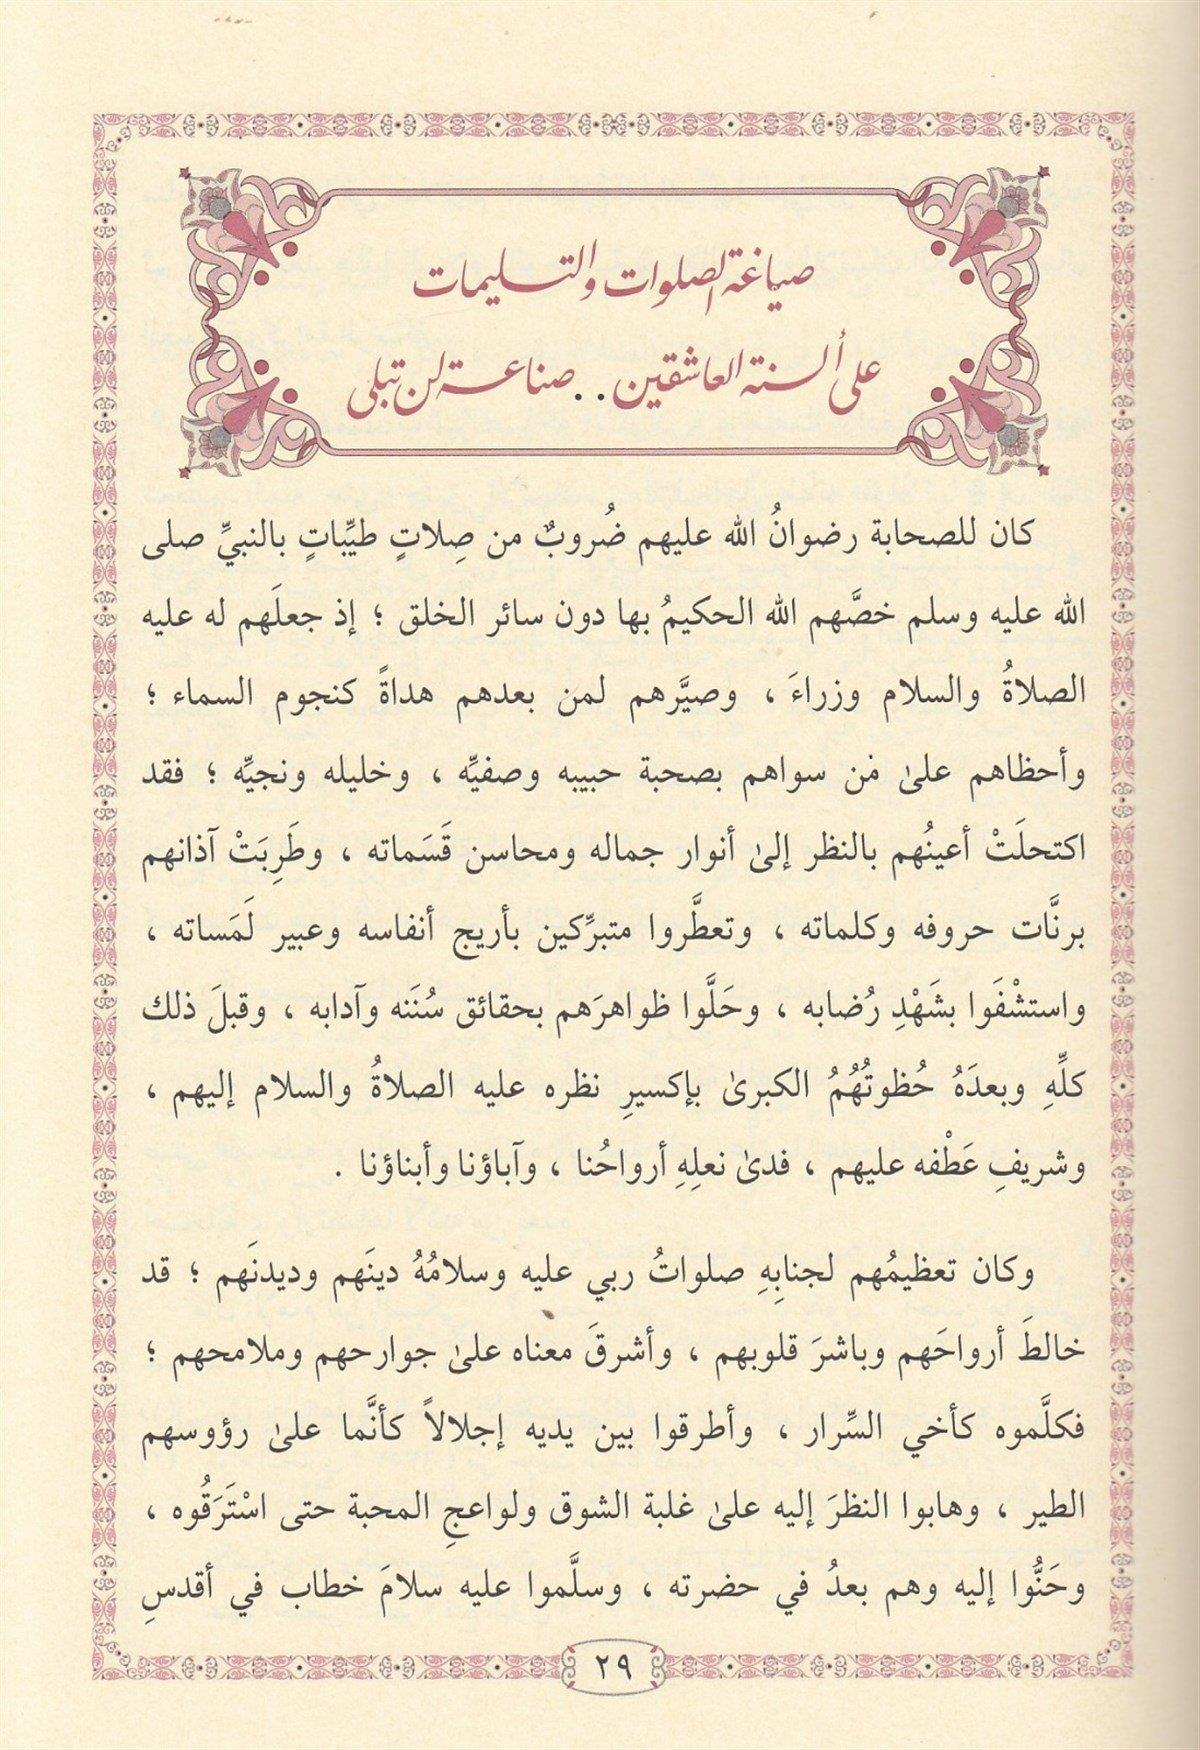 صياغة الصلوات والتسليمات
على ألسنة العاشقين .. صناعة لن تبلى
كان للصحابة رضوانُ الله عليهم ضُروبٌ من صِلاتٍ طيِّباتٍ بالنبيِّ صلى
الله عليه وسلم خصَّهم الله الحكيمُ بها دون سائر الخلق ؛ إذ جعلَهم له عليه
الصلاةُ والسلام وزراءَ ، وصيَّرهم لمن بعدهم هداةً كنجوم السماء ؛
وأحظاهم علىٰ مَن سواهم بصحبة حبيبه وصفيِّه ، وخليله ونجيِّه ؛ فقد
اكتحلَتْ أعينُهم بالنظر إلىٰ أنوار جماله ومحاسن قَسَماته ، وطَرِبَتْ آذانهم
برنَّات حروفه وكلماته ، وتعطَّروا متبرِّكين بأريج أنفاسه وعبير لَمَساته ،
واستشْفَوا بشَهْدِ رُضابه ، وحَلَّوا ظواهرَهم بحقائق سُنَنه وآدابه ، وقبلَ ذلك
كلِّهِ وبعدَهُ حُظوتُهُمُ الكبرىٰ بإكسيرِ نظره عليه الصلاةُ والسلام إليهم ،
وشريفِ عَطْفه عليهم ، فدىٰ نعلِهِ أرواحُنا ، وآباؤنا وأبناؤنا .
وكان تعظيمُهم لجنابِهِ صلواتُ ربي عليه وسلامُهُ دينَهم وديدنَهم ؛ قد
خالطَ أرواحَهم وباشرَ قلوبهم ، وأشرقَ معناه علىٰ جوارحهم وملامحهم ؛
فكلَّموه كأخي السِّرار ، وأطرقوا بين يديه إجلالاً كأنَّما علىٰ رؤوسهم
الطير ، وهابوا النظرَ إليه علىٰ غلبة الشوق ولواعجِ المحبة حتى اسْتَرَقُوه ،
وحَنُّوا إليه وهم بعدُ في حضرته ، وسلَّموا عليه سلامَ خطاب في أقدسِ
٢٩